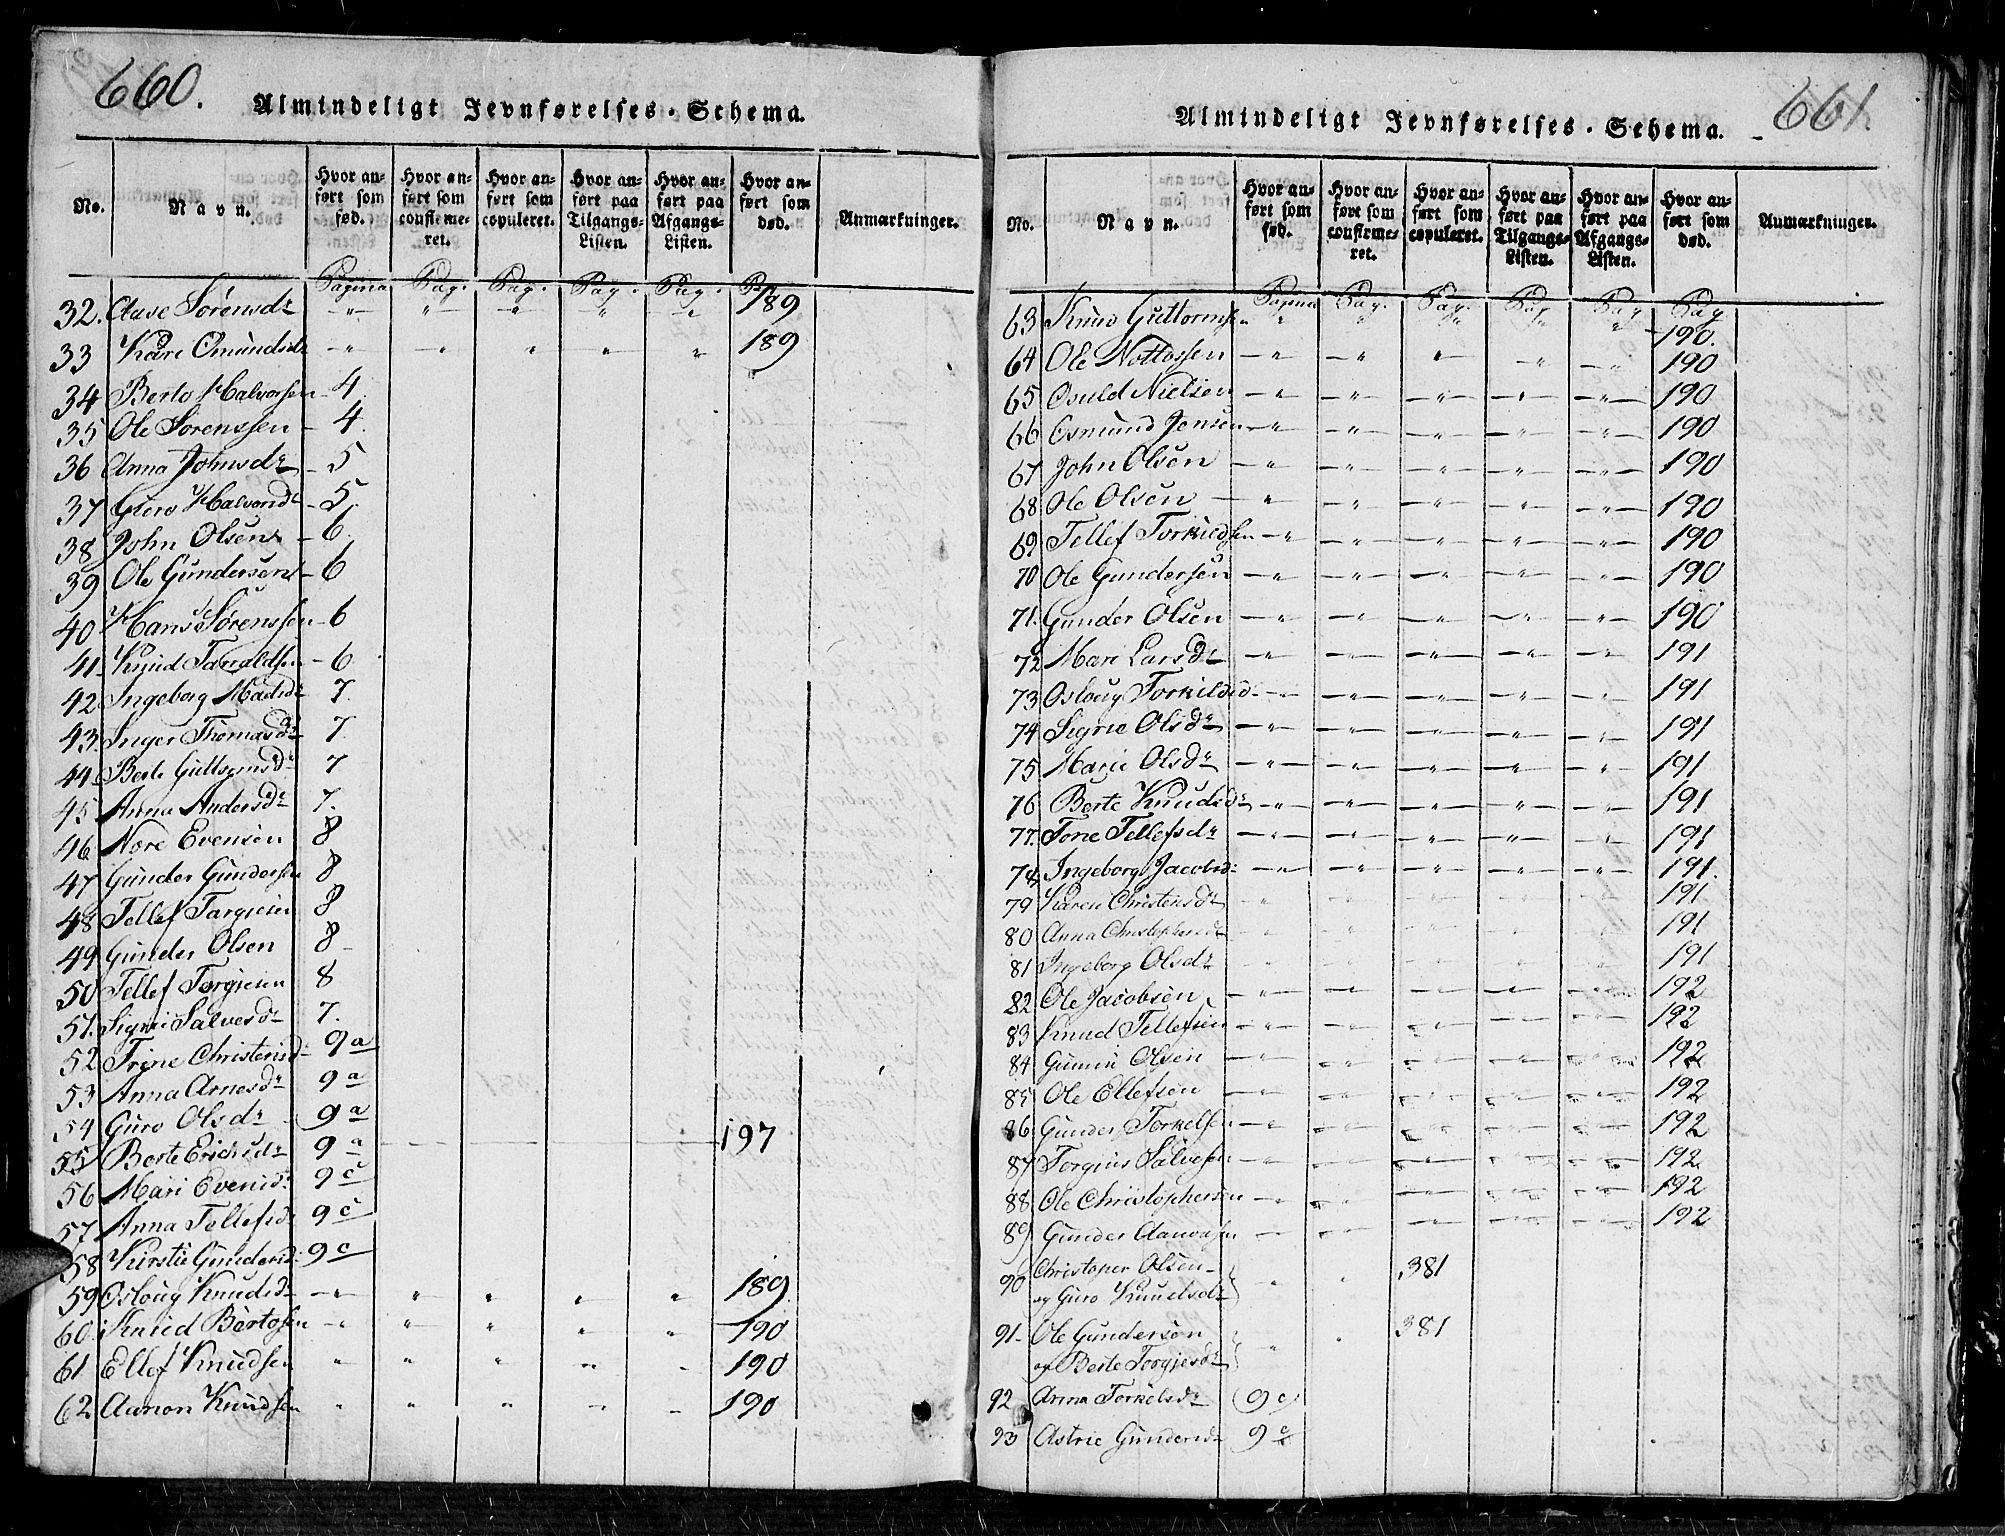 660.
Almindeligt Jevnførelses-Schema.
No.
Navn.
Hvor an-
ført som
fød.
Hvor an-
ført som
confirme-
ret.
Hvor an-
ført som
copuleret.
Hvor an-
ført paa
Tilgangs-
Listen.
Hvor an-
ført paa
Afgangs-
Listen.
Hvor an-
ført som
død.
Anmærkninger.
Pagina Pag. Pag. Pag. Pag. Pag
32. Aase Sörensdr " " " " " 189
33 Kari Omundsdr " " " " " 189
34 Berto Halvorsen 4
35 Ole Sörenssen 4
36 Anna Johnsdr 5
37 Guro Halvorsdr 5
38 John Olsen 6
39 Ole Gundersen 6
40 Hans Sörenssen 6
41 Knud Taraldsen 6
42 Ingeborg Madsdr 7
43. Inger Thomasdr 7
44 Berte Guttormsdr 7
45 Anna Andersdr 7.
46 Nore Evensen 8
47 Gunder Gundersen 8
48 Tellef Targiesen 8
49 Gunder Olsen 8
50 Tellef Torgiesen 8
51. Sigri Salvesdr 7.
52 Trine Christensdr 9 a
53 Anna Arnesdr 9 a
54 Guro Olsdr 9 a
55 Berte Erichsdr 9 a 197
56 Mari Evensdr 9 c
57 Anna Tellefsdr 9 c
58 Kirstie Gundersdr 9 c
59 Oslaug Knudsdr " " " " " 189.
60. Knud Bertosen " " " " " 190
61 Ellef Knudsen " " " " " 190
62 Aanon Knudsen " " " " " 190
661.
Almindeligt Jevnførelses-Schema.
No.
Navn.
Hvor an-
ført som
fød.
Hvor an-
ført som
confirme-
ret.
Hvor an-
ført som
copuleret.
Hvor an-
ført paa
Tilgangs-
Listen.
Hvor an-
ført paa
Afgangs-
Listen.
Hvor an-
ført som
død.
Anmærkninger.
Pagina Pag. Pag. Pag Pag Pag
63 Knud Guttormsen " " " " " 190.
64 Ole Nottossen " " " " " 190
65 Osuld Nielsen " " " " " 190
66 Osmund Jensen " " " " " 190
67 John Olsen " " " " " 190
68 Ole Olsen " " " " " 190
69 Tellef Torkildsen " " " " " 190
70 Ole Gundersen " " " " " 190
71. Gunder Olsen " " " " " 190
72 Mari Larsdr " " " " " 191
73 Oslaug Torkildsd " " " " " 191
74 Sigrie Olsdr " " " " " 191
75 Marie Olsdr " " " " " 191
76 Berte Knudsd " " " " " 191
77. Tone Tellefsdr " " " " " 191
78 Ingeborg Jacobsdr " " " " " 191.
79 Karen Christensdr " " " " " 191
80 Anna Christophersdr " " " " " 191
81 Ingeborg Olsdr " " " " " 191
82 Ole Jacobsen " " " " " 192
83 Knud Tellefsen " " " " " 192
84 Gunni Olsen " " " " " 192
85 Ole Ellefsen " " " " " 192
86 Gunder Torkelsen " " " " " 192
87 Torgius Salvesen " " " " " 192
88 Ole Christophersen " " " " " 192
89 Gunder Aanonsen " " " " " 192
90 Christoper Olsen " " 381
og Guro Knudsdr
91 Ole Gundersen " " 381
og Berte Torgiesdr
92 Anna Torkelsdr 9 c
93 Astrie Gundersdr 9 c